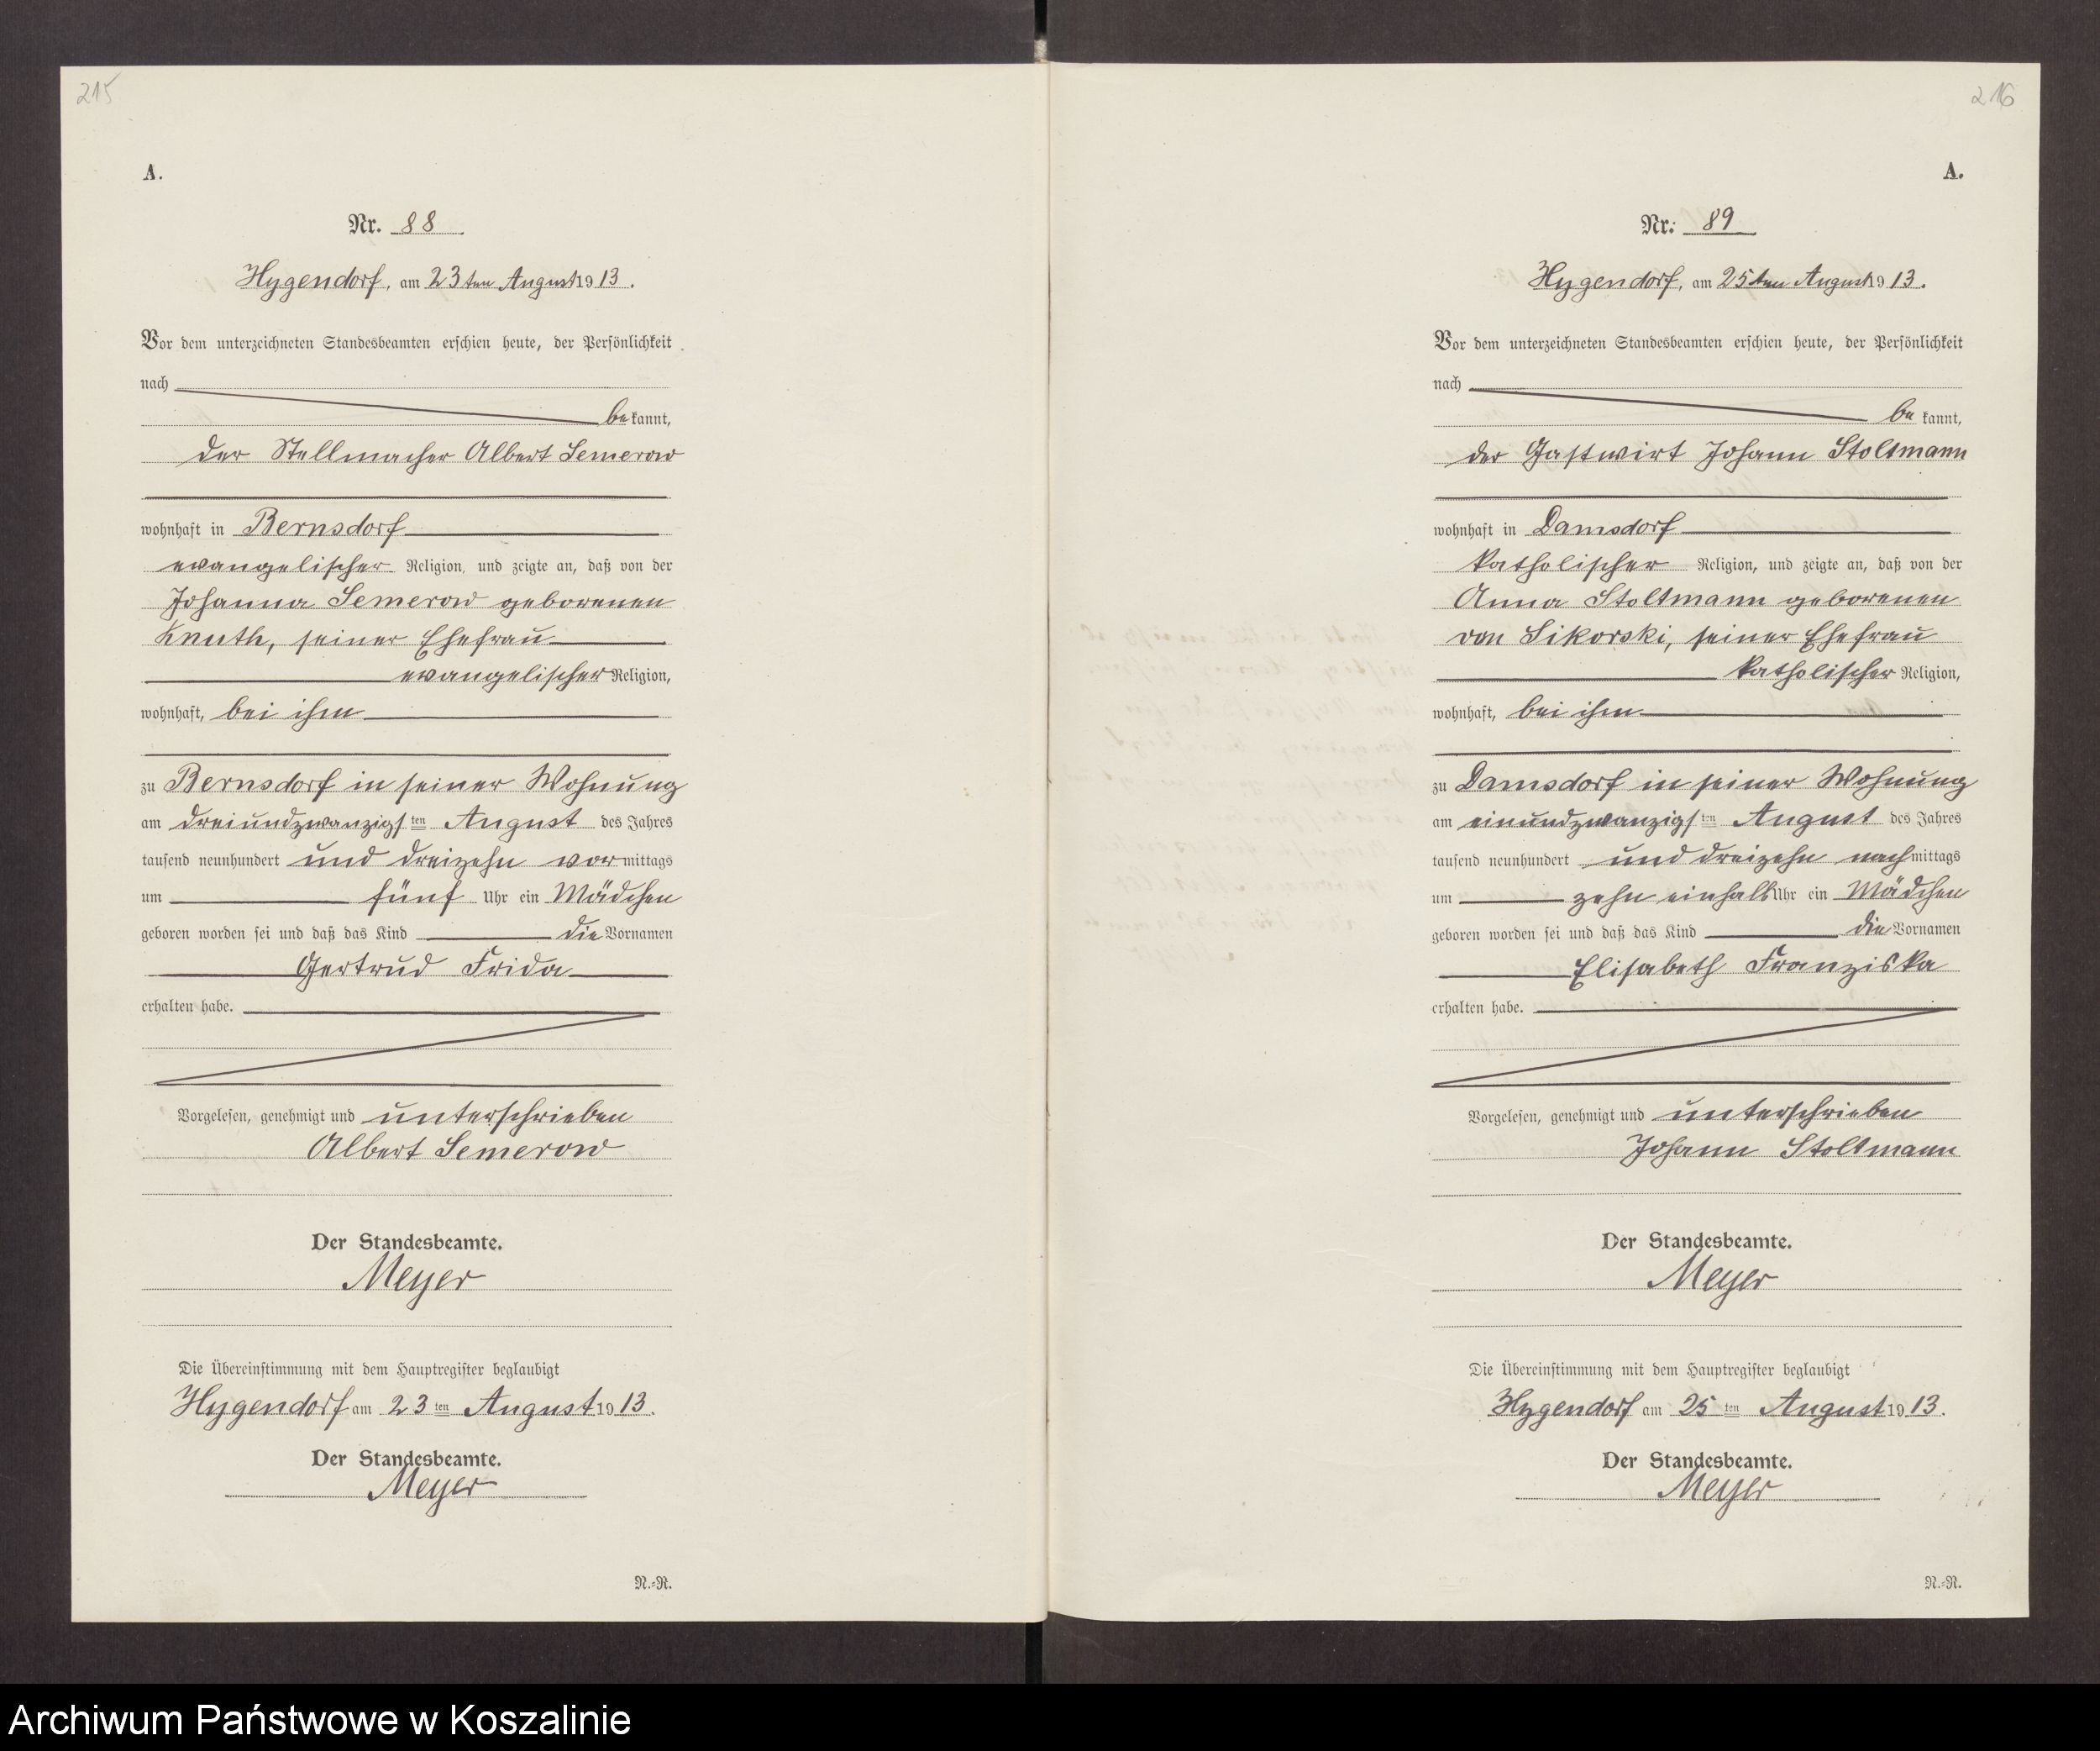 215
A.
Nr. 88.
Hygendorf, am 23ten August 1913.
Vor dem unterzeichneten Standesbeamten erschien heute, der Persönlichkeit
nach
bekannt,
der Stellmacher Albert Semerow
wohnhaft in Bernsdorf
evangelischer Religion, und zeigte an, daß von der
Johanna Semerow geborenen
Knuth, seiner Ehefrau
evangelischer Religion,
wohnhaft, bei ihm
zu Bernsdorf in seiner Wohnung
am dreiundzwanzigsten August des Jahres
tausend neunhundert und dreizehn vormittags
um fünf Uhr ein Mädchen
geboren worden sei und daß das Kind die Vornamen
Gertrud Frida
erhalten habe.
Vorgelesen, genehmigt und unterschrieben
Albert Semerow
Der Standesbeamte.
Meyer
Die Übereinstimmung mit dem Hauptregister beglaubigt
Hygendorf am 23ten August 1913.
Der Standesbeamte.
Meyer
N.=R.
216
A.
Nr. 89
Hygendorf, am 25ten August 1913.
Vor dem unterzeichneten Standesbeamten erschien heute, der Persönlichkeit
nach
bekannt,
der Gastwirt Johann Stoltmann
wohnhaft in Damsdorf
katholischer Religion, und zeigte an, daß von der
Anna Stoltmann geborenen
von Sikorski, seiner Ehefrau
katholischer Religion,
wohnhaft, bei ihm
zu Damsdorf in seiner Wohnung
am einundzwanzigsten August des Jahres
tausend neunhundert und dreizehn nachmittags
um zehn einhalb Uhr ein Mädchen
geboren worden sei und daß das Kind die Vornamen
Elisabeth Franziska
erhalten habe.
Vorgelesen, genehmigt und unterschrieben
Johann Stoltmann
Der Standesbeamte.
Meyer
Die Übereinstimmung mit dem Hauptregister beglaubigt
Hygendorf am 25ten August 1913.
Der Standesbeamte.
Meyer
N.=R.
Archiwum Państwowe w Koszalinie